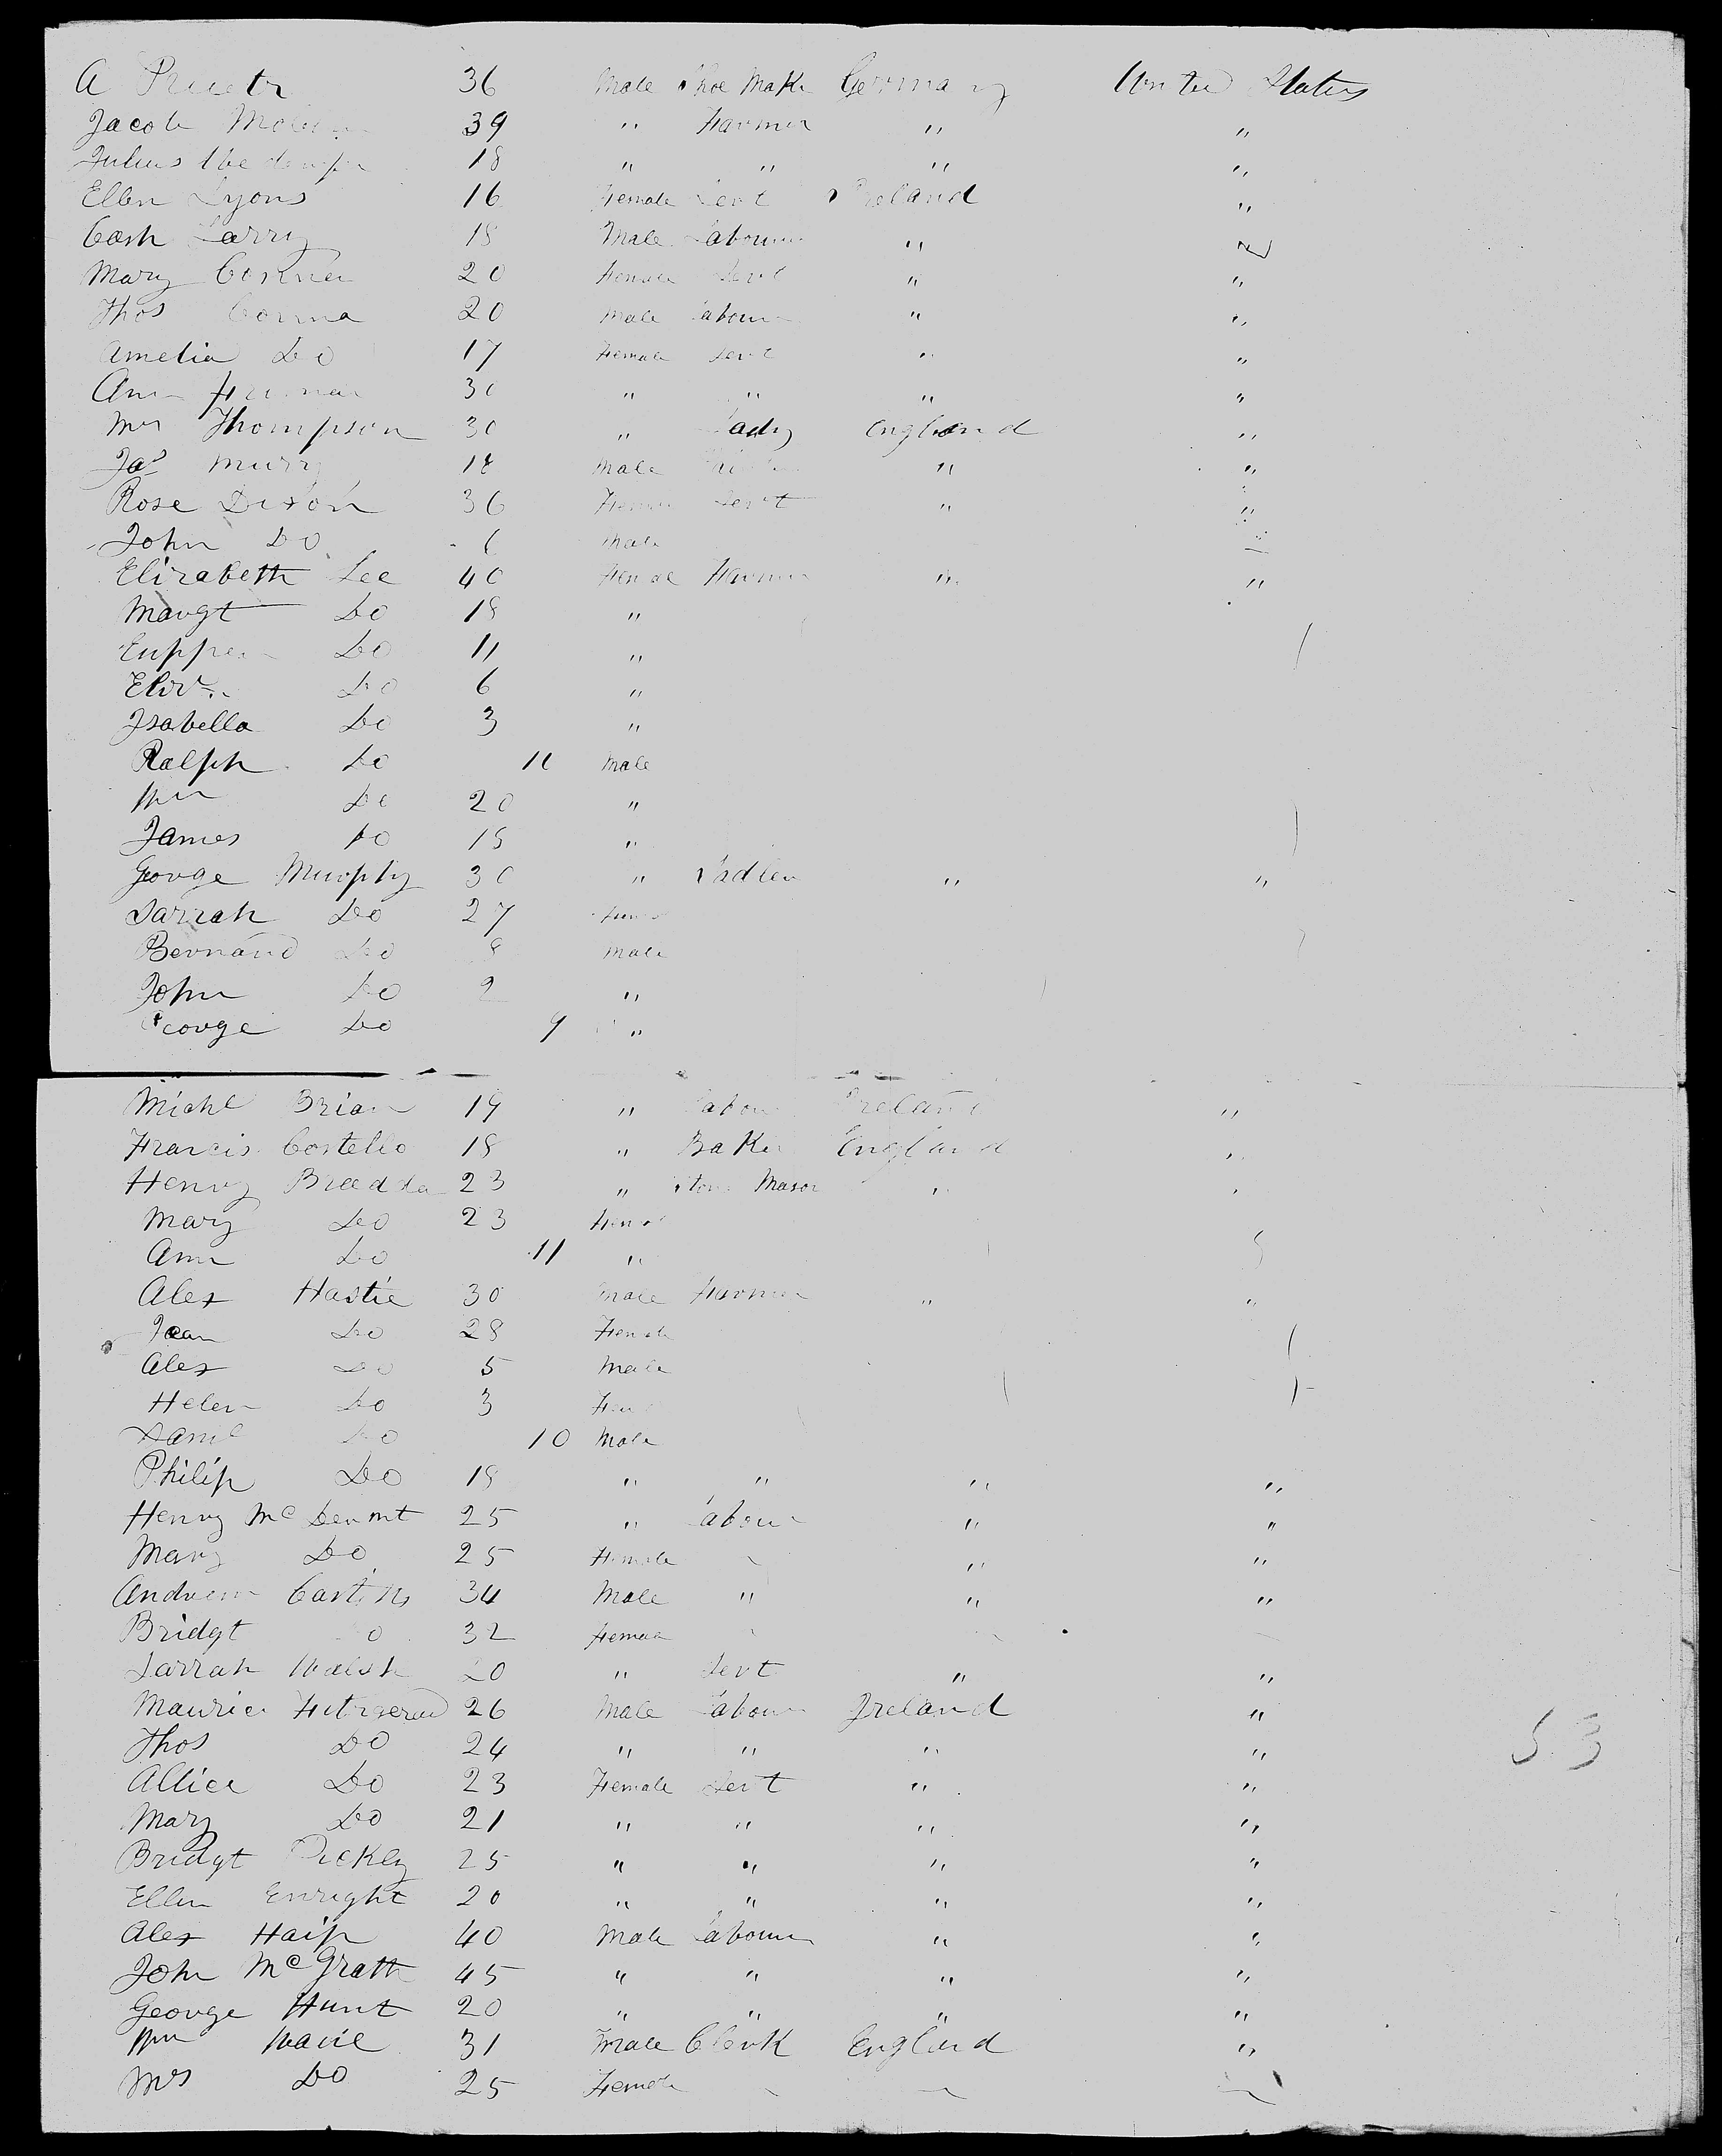 A 36 Male Shoe Make Germany United States
Jacob 39 " Farmer " "
Julius 18 " " " "
Ellen Lyons 16 Female Servt Ireland "
Cash Larry 18 Male Labourer "
Mary Conner 20 Female Servt " "
Thos Conna 20 Male Labour " "
Amelia Do 17 Female Servt " "
Ann 30 " " " "
Mrs Thompson 30 " Lady England "
Jas Murry 18 Male " "
Rose Dixon 36 Female Servt " "
John Do 6 Male
Elizabeth Lee 40 Female Farmer " "
Margt Do 18 "
Do 11 "
Eliz Do 6 "
Isabella Do 3 "
Ralph Do 11 Male
Wm Do 20 "
James Do 18 "
George Murphy 30 " Sadler " "
Sarrah Do 27 Female
Bernard Do 8 Male
John Do 2 "
George Do 9 "
Michl Brian 19 " Labour Ireland "
Francis Costello 18 " Baker England "
Henry 23 " Stone Mason " "
Mary Do 23 Female
Ann Do 11 "
Alex Hastie 30 Male Farmer " "
Jean Do 28 Female
Alex Do 5 Male
Helen Do 3 Fem
Danl Do 10 Male
Philip Do 18 " " " "
Henry Mc Dermt 25 " Labour " "
Mary Do 25 Female " "
Andrew 34 Male " " "
Bridgt Do 32 Female
Sarrah Walsh 20 " Servt " "
Maurice Fitzgerald 26 Male Labour Ireland "
Thos Do 24 " " " "
Allice Do 23 Female Servt " "
Mary Do 21 " " " "
Bridgt Dickey 25 " " " "
Ellen Enright 20 " " " "
Alex Haip 40 Male Labourer " "
John McGrath 45 " " " "
George Hunt 20 " " " "
Wm 31 Male Clerk England "
Mrs Do 25 Female
53